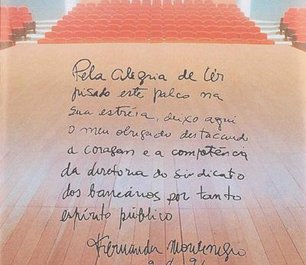 Pela alegria de ter
pisado este palco na
sua estréia, deixo aqui
o meu obrigado destacando
a coragem e a competência
da diretoria do Sindicato
dos bancários por tanto
espírito público
Fernanda Montenegro